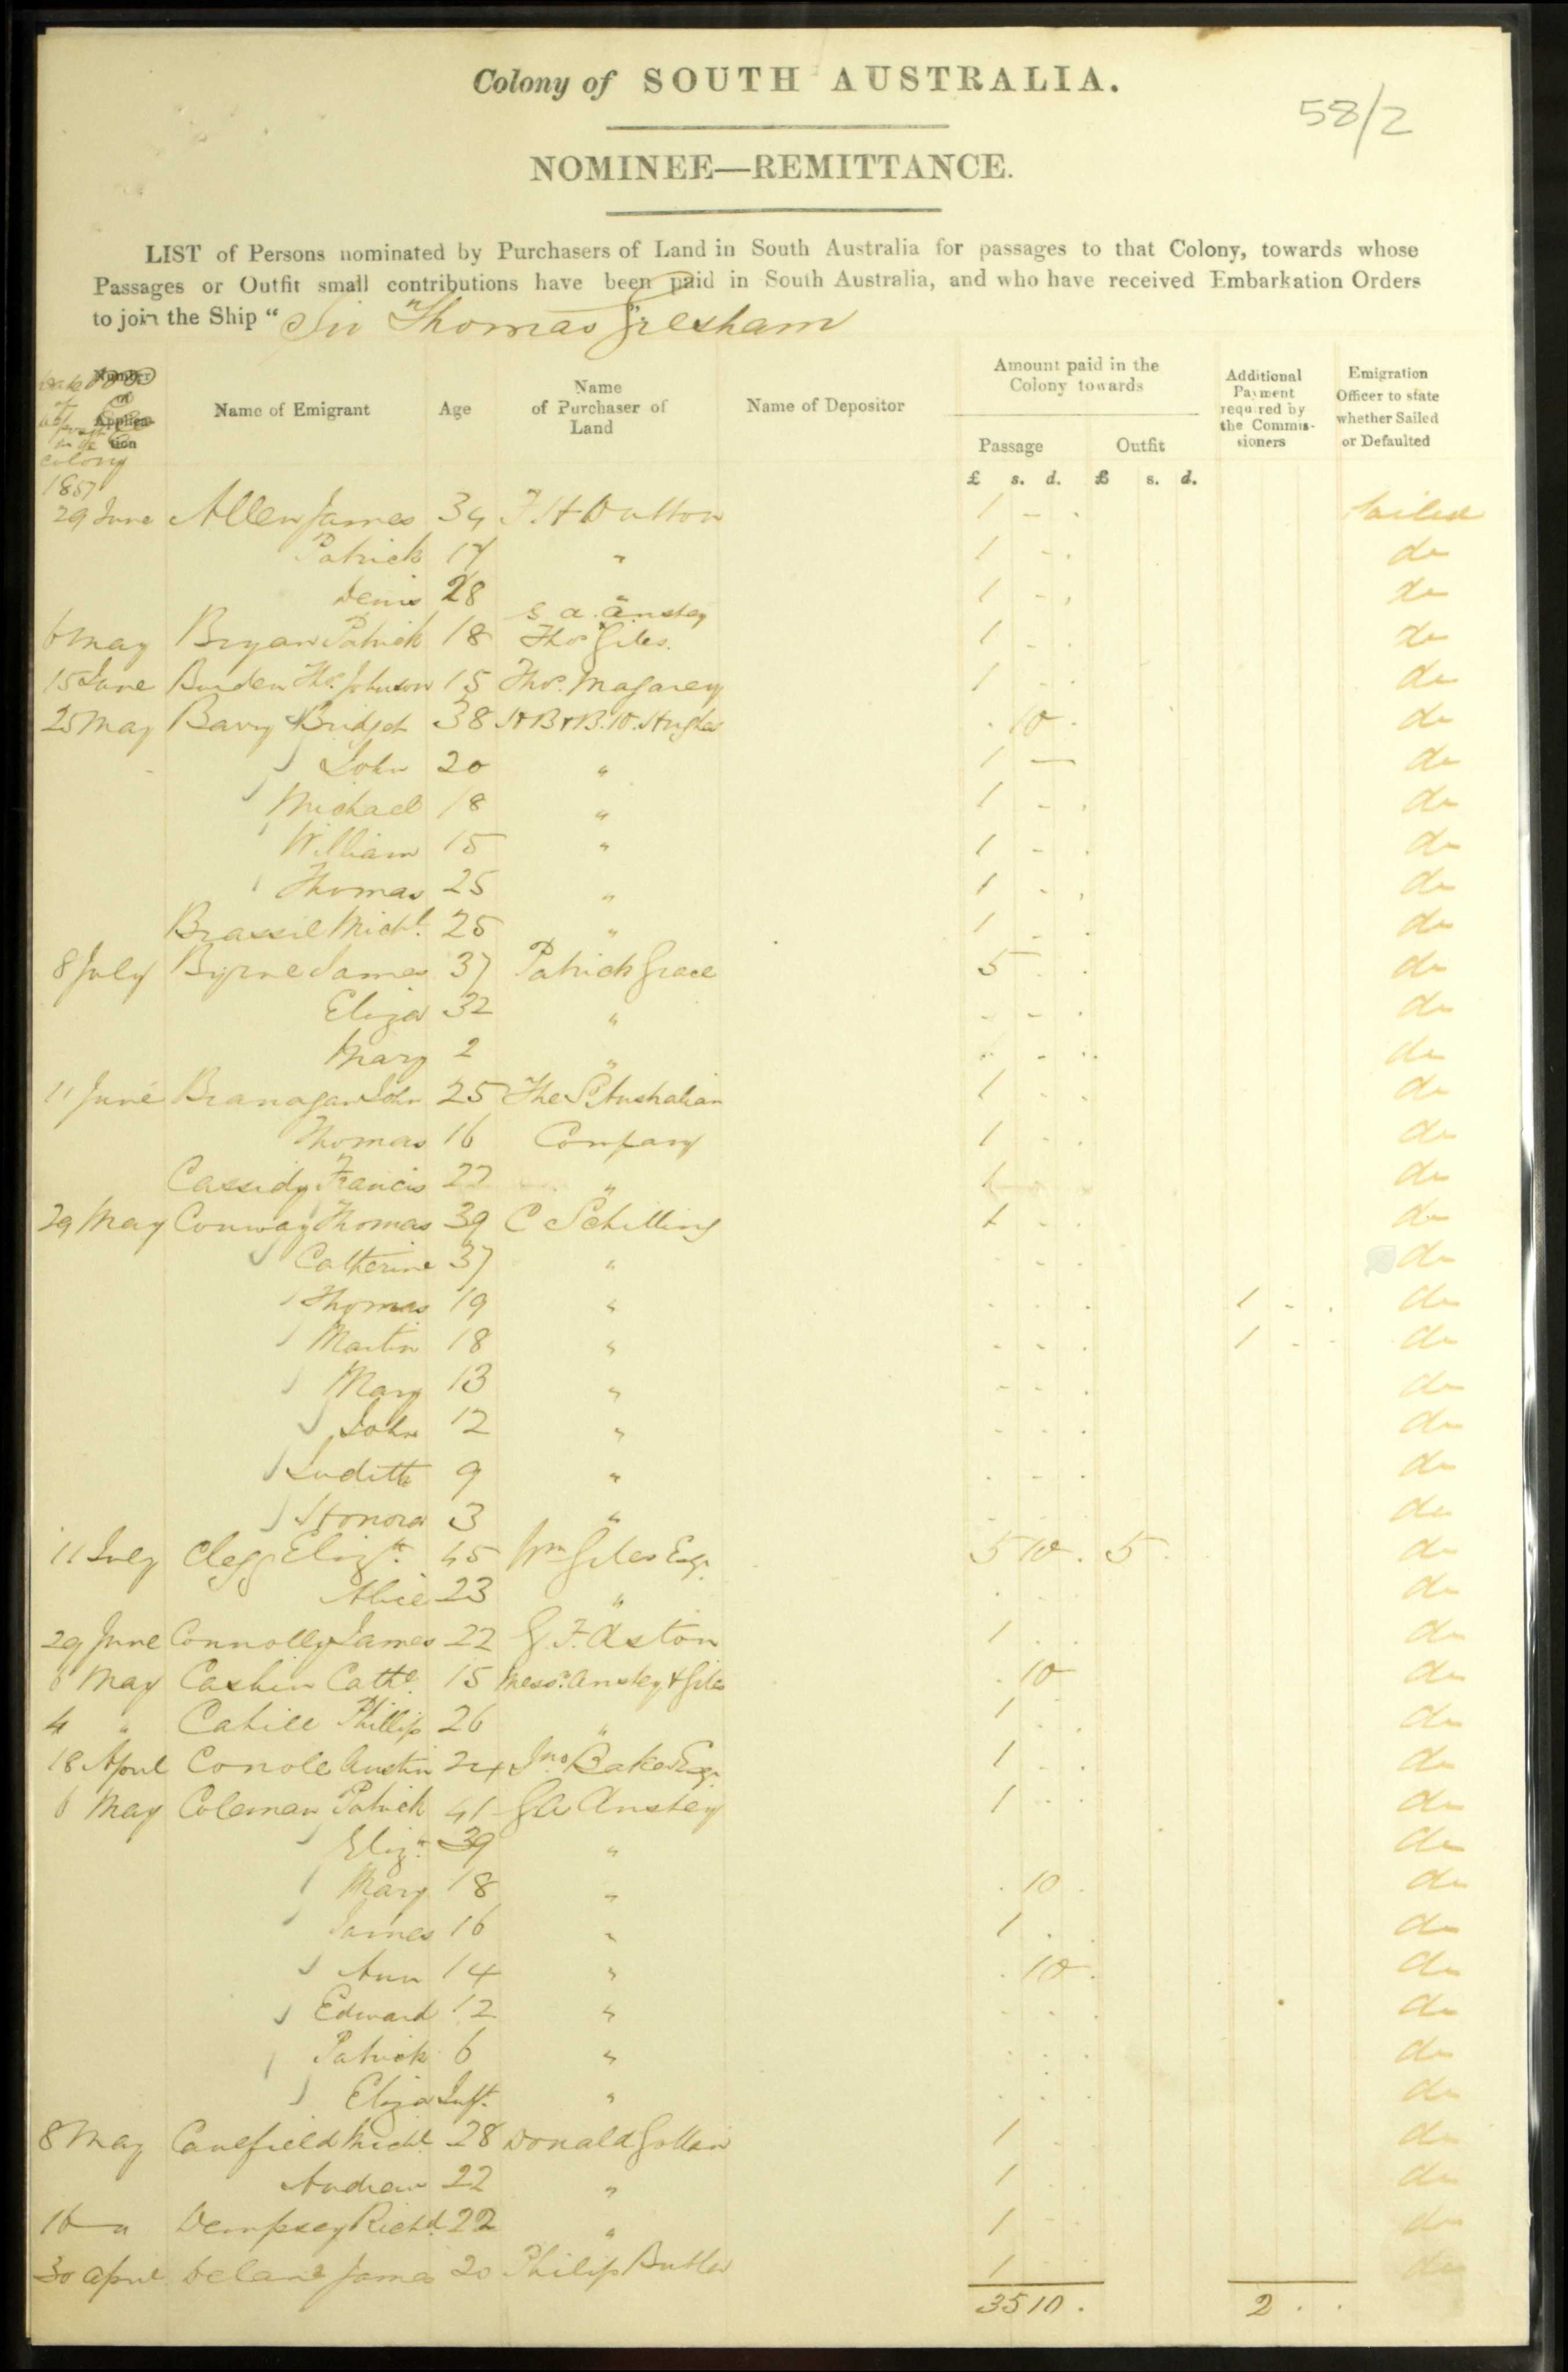 Colony of SOUTH AUSTRALIA.
58/2
NOMINEE—REMITTANCE.
LIST of Persons nominated by Purchasers of Land in South Australia for passages to that Colony, towards whose
Passages or Outfit small contributions have been paid in South Australia, and who have received Embarkation Orders
to join the Ship " Sir Thomas Gresham
Number of Application Name of Emigrant Age Name of Purchaser of Land Name of Depositor Amount paid in the Colony towards Passage Outfit Additional Payment required by the Commissioners Emigration Officer to state whether Sailed or Defaulted
colony
1857 £ s. d. £ s. d.
29 June Allen James 34 F. H Dutton 1 - . Sailed
Patrick 17 " 1 - . do
Denis 28 " 1 - . do
G. A. Anstey
6 May Bryan Patrick 18 Thos Giles. 1 - . do
15 June Burden Thos. Johnson 15 Thos. Magarey 1 - . do
25 May Barry Bridget 38 H B & B. W. Hughes . 10 . do
John 20 " 1 — do
Michael 18 " 1 - . do
William 15 " 1 - . do
Thomas 25 " 1 - . do
Brassil Michl. 25 " 1 - . do
8 July Byrne James 37 Patrick Grace 5 . . do
Eliza 32 " - - . do
Mary 2 " . - . do
11 June Branagan John 25 The S. Australian 1 - . do
Thomas 16 Company 1 - . do
Cassidy Francis 22 " 1 do
29 May Conway Thomas 39 C Schilling 1 - . do
Catherine 37 " - - . do
Thomas 19 " - - . 1 - . do
Martin 18 " - - . 1 - . do
Mary 13 " - - . do
John 12 " - - . do
Judith 9 " - - . do
Honora 3 " - - . do
11 July Clegg Elizth. 45 Wm Giles Esqr. 5 10 . 5 . do
Alice 23 " . . do
29 June Connolly James 22 G. F. Aston 1 . . do
6 May Cashin Cathe. 15 Messrs. Anstey & Giles . 10 do
4 " Cahill Phillip 26 " 1 . . do
18 April Conole Austin 24 Jno Baker Esqr. 1 . . do
6 May Coleman Patrick 41 G A Anstey 1 . . do
Elizth. 39 " do
Mary 18 " . 10 . do
James 16 " 1 . . do
Ann 14 " . 10 . do
Edward 12 " . . . do
Patrick 6 " . . . do
Eliza Inft. " . . . do
8 May Caulfield Michl. 28 Donald Gollan 1 . do
Andrew 22 " 1 . . do
16 " Dempsey Richd. 22 " 1 - . do
30 April Delane James 20 Philip Butler 1 . . do
35 10 . 2 . .